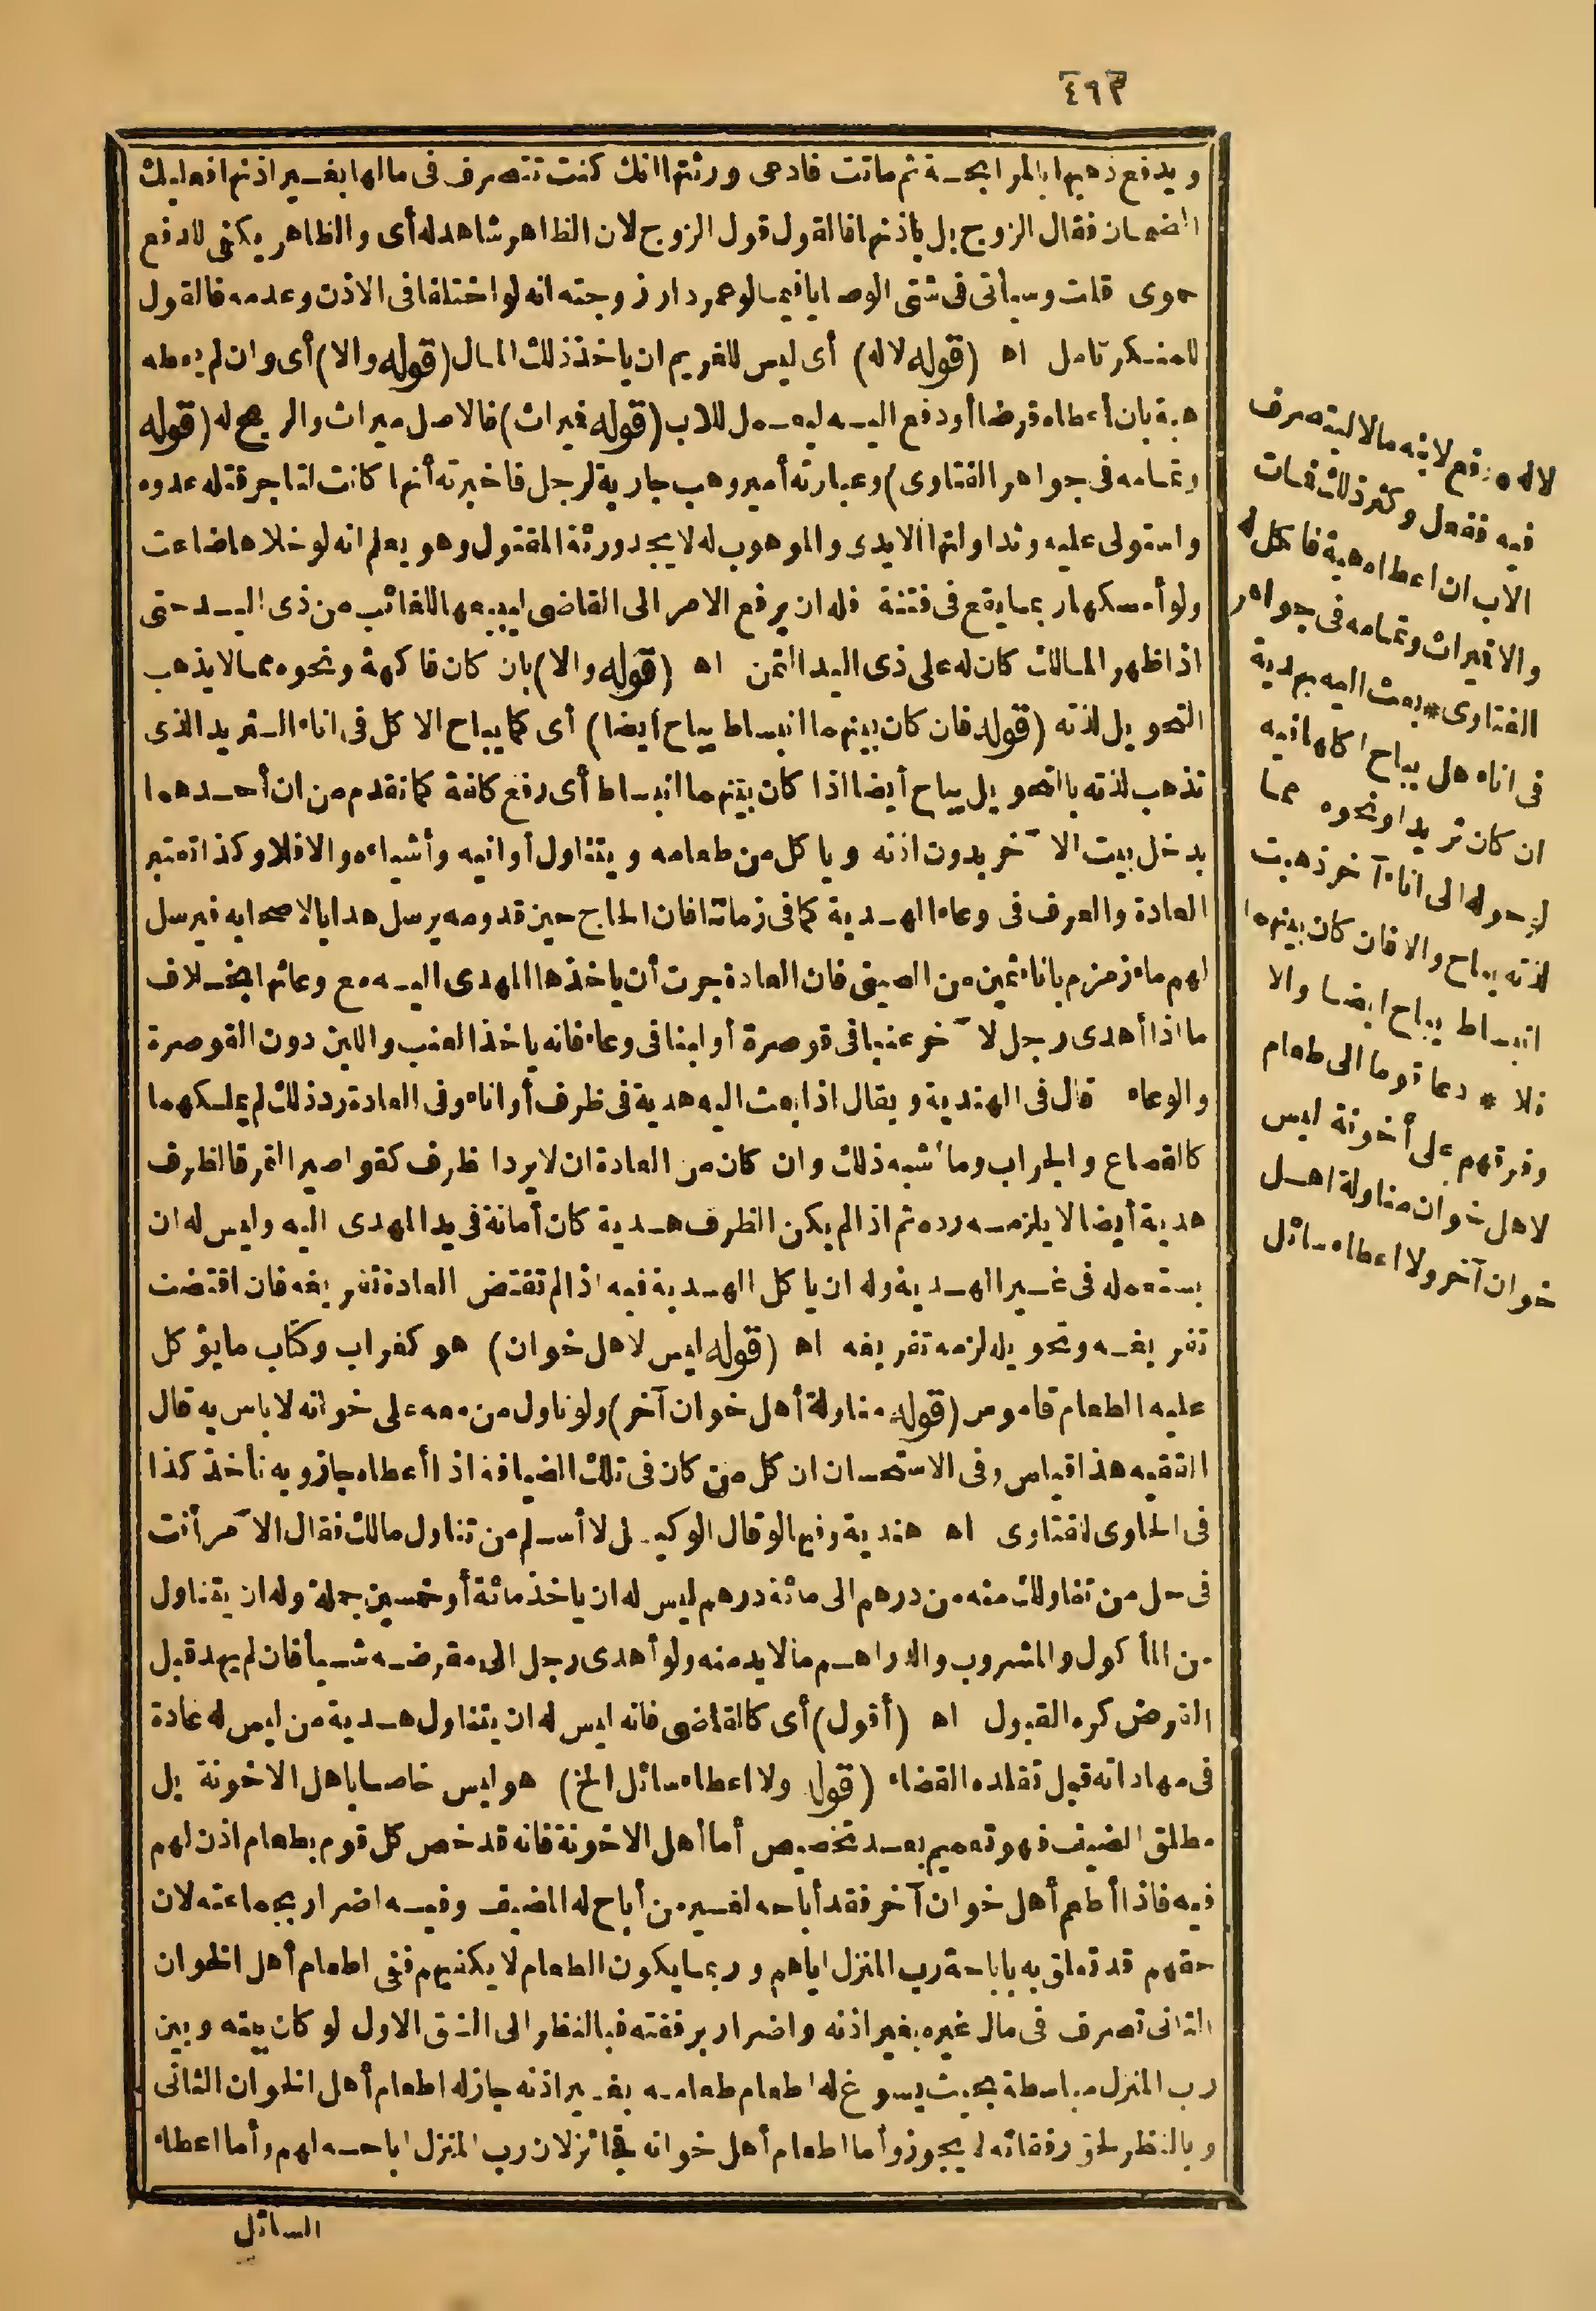 ٤٩٣
ويدفع ذهبها بالمرابحة ثم ماتت فادعى ورثتها انك كنت تتصرف فى مالها بغير اذنها فعليك
الضمان فقال الزوج بل باذنها فالقول قول الزوج لان الظاهر شاهد له أى والظاهر يكفى للدفع
حموى قلت وسيأتى فى شتى الوصايا فيما لو عمر دار زوجته انه لو اختلفا فى الاذن وعدمه فالقول
للمنكر تامل اه (قوله لا له) أى ليس للغريم ان ياخذ ذلك المال (قوله والا) أى وان لم يعطه
هبة بان أعطاه قرضا أو دفع اليه ليعمل للاب (قوله فميراث) فالاصل ميراث والربح له (قوله
وتمامه فى جواهر الفتاوى) وعبارته أمير وهب جارية لرجل فاخبرته أنها كانت لتاجر قتله عدوه
واستولى عليه وتداولتها الايدى والموهوب له لا يجد ورثة المقتول وهو يعلم انه لو خلاها ضاعت
ولو أمسكها ربما يقع فى فتنة فله ان يرفع الامر الى القاضى ليبيعها للغائب من ذى اليد حتى
اذا ظهر المالك كان له على ذى اليد الثمن اه (قوله والا) بان كان فاكهة ونحوه مما لا يذهب
التحويل لذته (قوله فان كان بينهما انبساط يباح أيضا) أى كما يباح الا كل فى اناء الثريد الذى
تذهب لذته بالتحويل يباح أيضا اذا كان بينهما انبساط أى رفع كلفة كما تقدم من ان أحدهما
يدخل بيت الآخر بدون اذنه وياكل من طعامه ويتناول أوانيه وأشياءه والا فلا وكذا تعتبر
العادة والعرف فى وعاء الهدية كما فى زماننا فان الحاج حين قدومه يرسل هدايا لاصحابه فيرسل
لهم ماء زمزم باناء ثمين من الصينى فان العادة جرت أن ياخذها المهدى اليه مع وعائها بخلاف
ما اذا أهدى رجل لآخر عنبا فى قوصرة أو لبنا فى وعاء فانه ياخذ العنب واللبن دون القوصرة
والوعاء قال فى الهندية ويقال اذا بعث اليه هدية فى ظرف أو اناء وفى العادة رد ذلك لم يملكهما
كالقصاع والجراب وما أشبه ذلك وان كان من العادة ان لا يرد الظرف كقواصير التمر فالظرف
هدية أيضا لا يلزمه رده ثم اذا لم يكن الظرف هدية كان أمانة فى يد المهدى اليه وليس له ان
يستعمله فى غير الهدية وله ان ياكل الهدية فيه اذا لم تقتض العادة تفريغه فان اقتضت
تفريغه وتحويله لزمه تفريغه اه (قوله ليس لاهل خوان) هو كغراب وكتاب ما يؤكل
عليه الطعام قاموس (قوله مناولة أهل خوان آخر) ولو ناول من معه على خوانه لا باس به قال
الفقيه هذا قياس وفى الاستحسان ان كل من كان فى تلك الضيافة اذا أعطاه جاز وبه نأخذ كذا
فى الحاوى للفتاوى اه هندية وفيها لو قال الوكيل لا أسلم من تناول مالك فقال الآمر أنت
فى حل من تناولك منه من درهم الى مائة درهم ليس له ان ياخذ مائة أو خمسين جملة وله ان يتناول
من المأكول والمشروب والدراهم ما لا بد منه ولو أهدى رجل الى مقرضه شيأ فان لم يهد قبل
القرض كره القبول اه (أقول) أى كالقاضى فانه ليس له ان يتناول هدية من ليس له عادة
فى مهاداته قبل تقلده القضاء (قوله ولا اعطاء سائل الخ) هو ليس خاصا باهل الاخونة بل
مطلق الضيف فهو تعميم بعد تخصيص أما أهل الاخونة فانه قد خص كل قوم بطعام اذن لهم
فيه فاذا أطعم أهل خوان آخر فقد أباحه لغير من أباح له المضيف وفيه اضرار بجماعته لان
حقهم قد تعلق به باباحة رب المنزل اياهم وربما يكون الطعام لا يكفيهم ففى اطعام أهل الخوان
الثانى تصرف فى مال غيره بغير اذنه واضرار برفقته فبالنظر الى الشق الاول لو كان بينه وبين
رب المنزل مباسطة بحيث يسوغ له اطعام طعامه بغير اذنه جاز له اطعام أهل الخوان الثانى
وبالنظر لحق رفقائه لا يجوز وأما اطعام أهل خوانه فجائز لان رب المنزل اباحه لهم وأما اعطاء
السائل
لا له * دفع لابنه مالا ليتصرف
فيه ففعل وكثر ذلك فمات
الاب ان اعطاه هبة فالكل له
والا فميراث وتمامه فى جواهر
الفتاوى * بعث اليه بهدية
فى اناء هل يباح اكلها فيه
ان كان ثريدا ونحوه مما
لو حوله الى اناء آخر ذهبت
لذته يباح والا فان كان بينهما
انبساط يباح ايضا والا
فلا * دعا قوما الى طعام
وفرقهم على أخونة ليس
لاهل خوان مناولة اهل
خوان آخر ولا اعطاء سائل